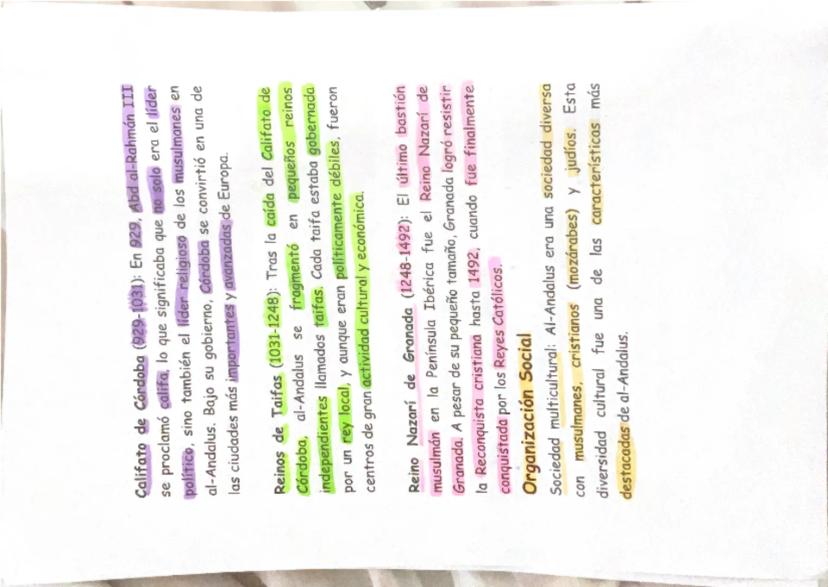 Califato de Córdoba (929-1031): En 929, Abd al-Rahmán III
se proclamó califa, lo que significaba que no solo era el líder
político, sino también el líder religioso de los musulmanes en
al-Andalus. Bajo su gobierno, Córdoba se convirtió en una de
las ciudades más importantes y avanzadas de Europa.
Reinos de Taifas (1031-1248): Tras la caída del Califato de
Córdoba, al-Andalus se fragmentó en pequeños reinos
independientes llamados taifas. Cada taifa estaba gobernada
por un rey local, y aunque eran políticamente débiles, fueron
centros de gran actividad cultural y económica.
Reino Nazarí de Granada (1248-1492): El último bastión
musulmán en la Península Ibérica fue el Reino Nazarí de
Granada. A pesar de su pequeño tamaño, Granada logró resistir
la Reconquista cristiana hasta 1492, cuando fue finalmente
conquistada por los Reyes Católicos.
Organización Social
Sociedad multicultural: Al-Andalus era una sociedad diversa
con musulmanes, cristianos (mozárabes) y judíos. Esta
diversidad cultural fue una de las características más
destacadas de al-Andalus.